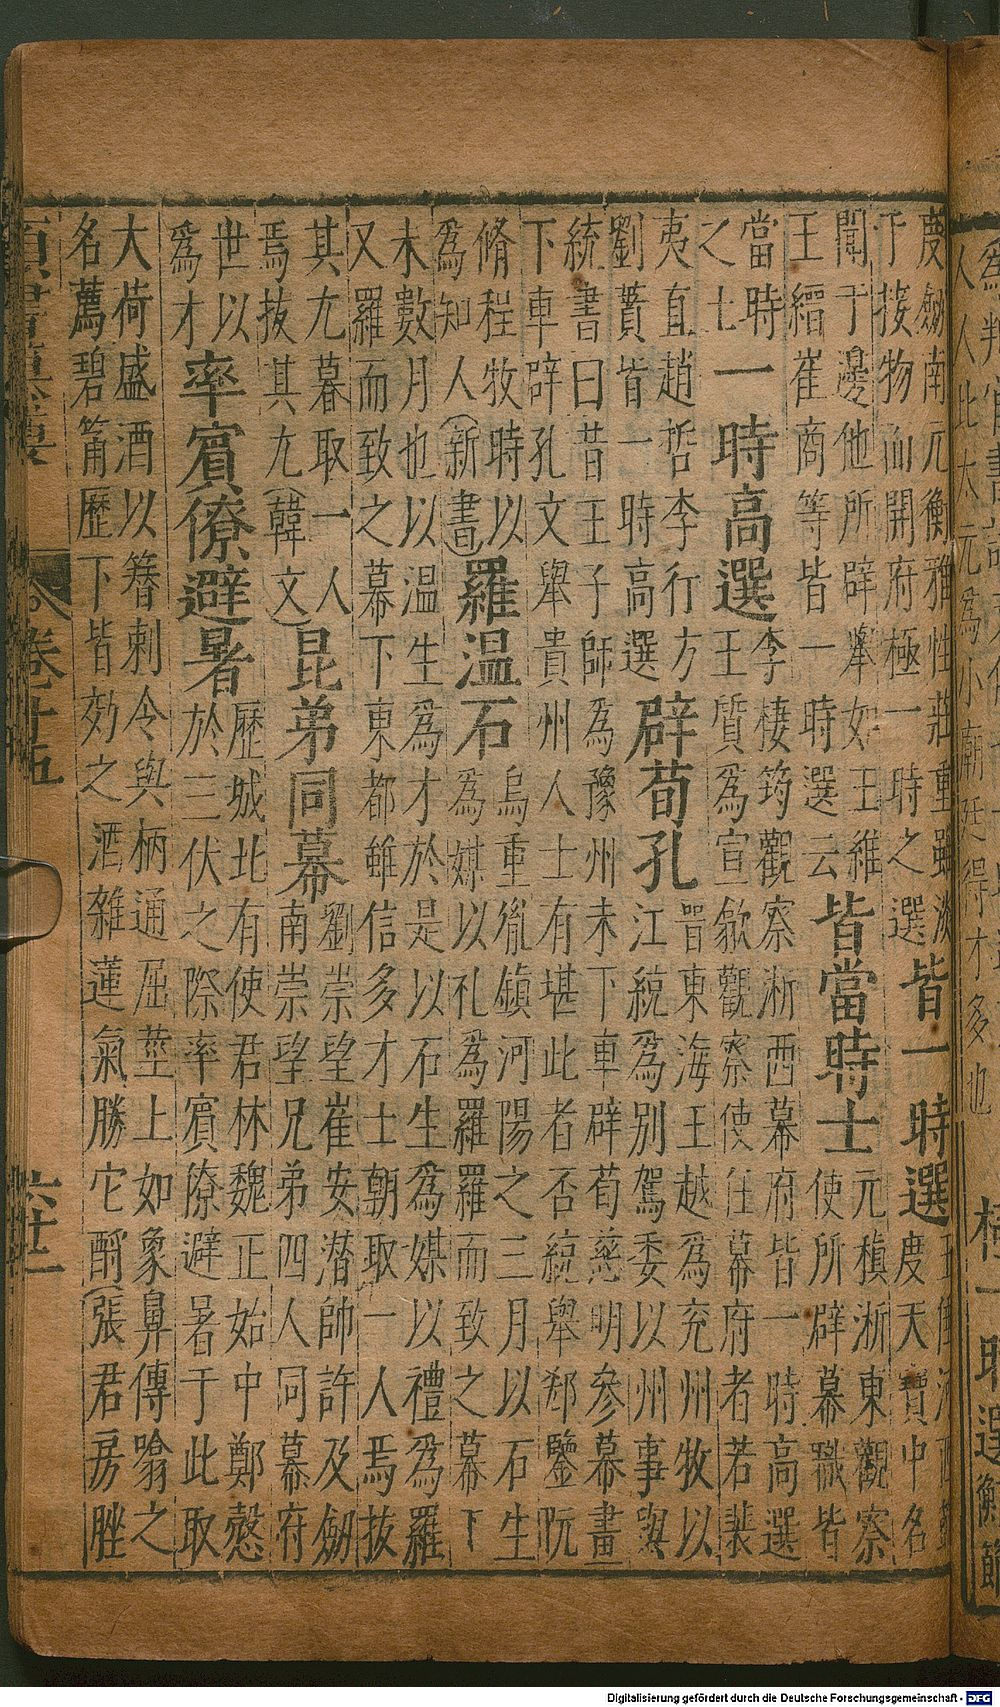 度劒南元衡雅性莊重雖淡
于接物而開府極一時之選
皆一時選
王倕河西
度天寶中名
聞于邊他所辟擧如王維
王縉崔商等皆一時選云
皆當時士
元稹淅東觀察
使所辟幕職皆
當時
之士
一時高選
李棲筠觀察淅西幕府皆一時高選
王質為宣歙觀察使在幕府者若裴
夷直趙哲李行方
劉蕡皆一時高選
辟荀孔
晉東海王越為兖州牧以
江統為別駕委以州事與
統書曰昔王子師為豫州未下車辟荀慈明參幕畫
下車辟孔文舉貴州人士有堪此者否統舉郄鑒阮
脩程牧時以
為知人(新書)
羅溫石
烏重胤鎮河陽之三月以石生
為媒以礼為羅羅而致之幕下
未數月也以温生為才於是以石生為媒以禮為羅
又羅而致之幕下東都雖信多才士朝取一人焉抜
其尤暮取一人
焉抜其尤(韓文)
昆弟同幕
劉崇望崔安潜帥許及劒
南崇望兄弟四人同幕府
世以
為才
率賓僚避暑
歷城北有使君林魏正始中鄭慤
於三伏之際率賓僚避暑于此取
大荷盛酒以簪刺令與柄通屈莖上如象鼻傳噏之
名薦碧筩歷下皆効之酒雜蓮氣勝它酧(張君房脞
卷十五
六十一
人人比太元為小朝廷得才多也
Digitalisierung gefördert durch die Deutsche Forschungsgemeinschaft - DFG